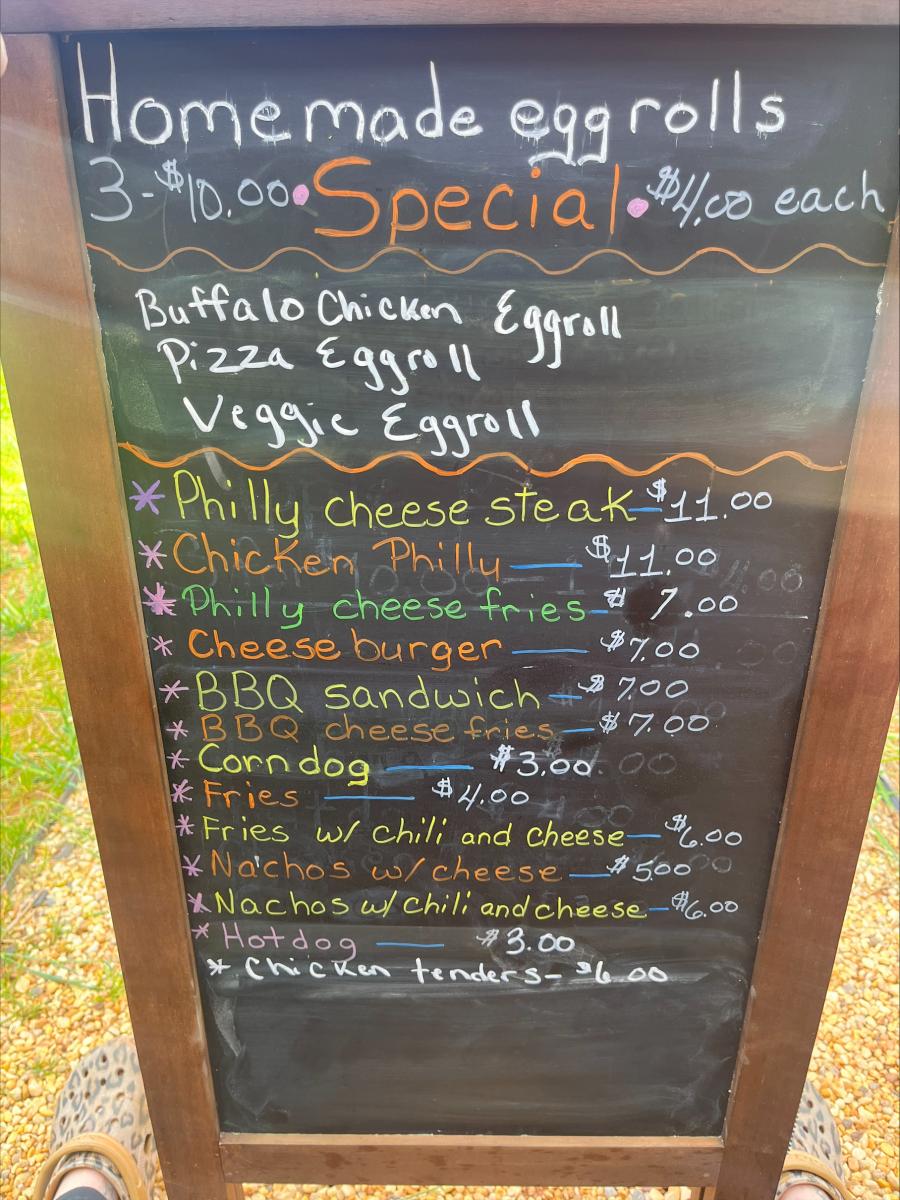 Homemade eggrolls
3-$10.00 • Special • $4.00 each
Buffalo Chicken Eggroll
Pizza Eggroll
Veggie Eggroll
* Philly cheese steak - $11.00
* Chicken Philly — $11.00
* Philly cheese fries - $7.00
* Cheeseburger — $7.00
* BBQ sandwich - $7.00
* BBQ cheese fries - $7.00
* Corndog — $3.00
* Fries — $4.00
* Fries w/ chili and cheese - $6.00
* Nachos w/ cheese - $5.00
* Nachos w/ chili and cheese - $6.00
* Hotdog — $3.00
* Chicken tenders - $6.00